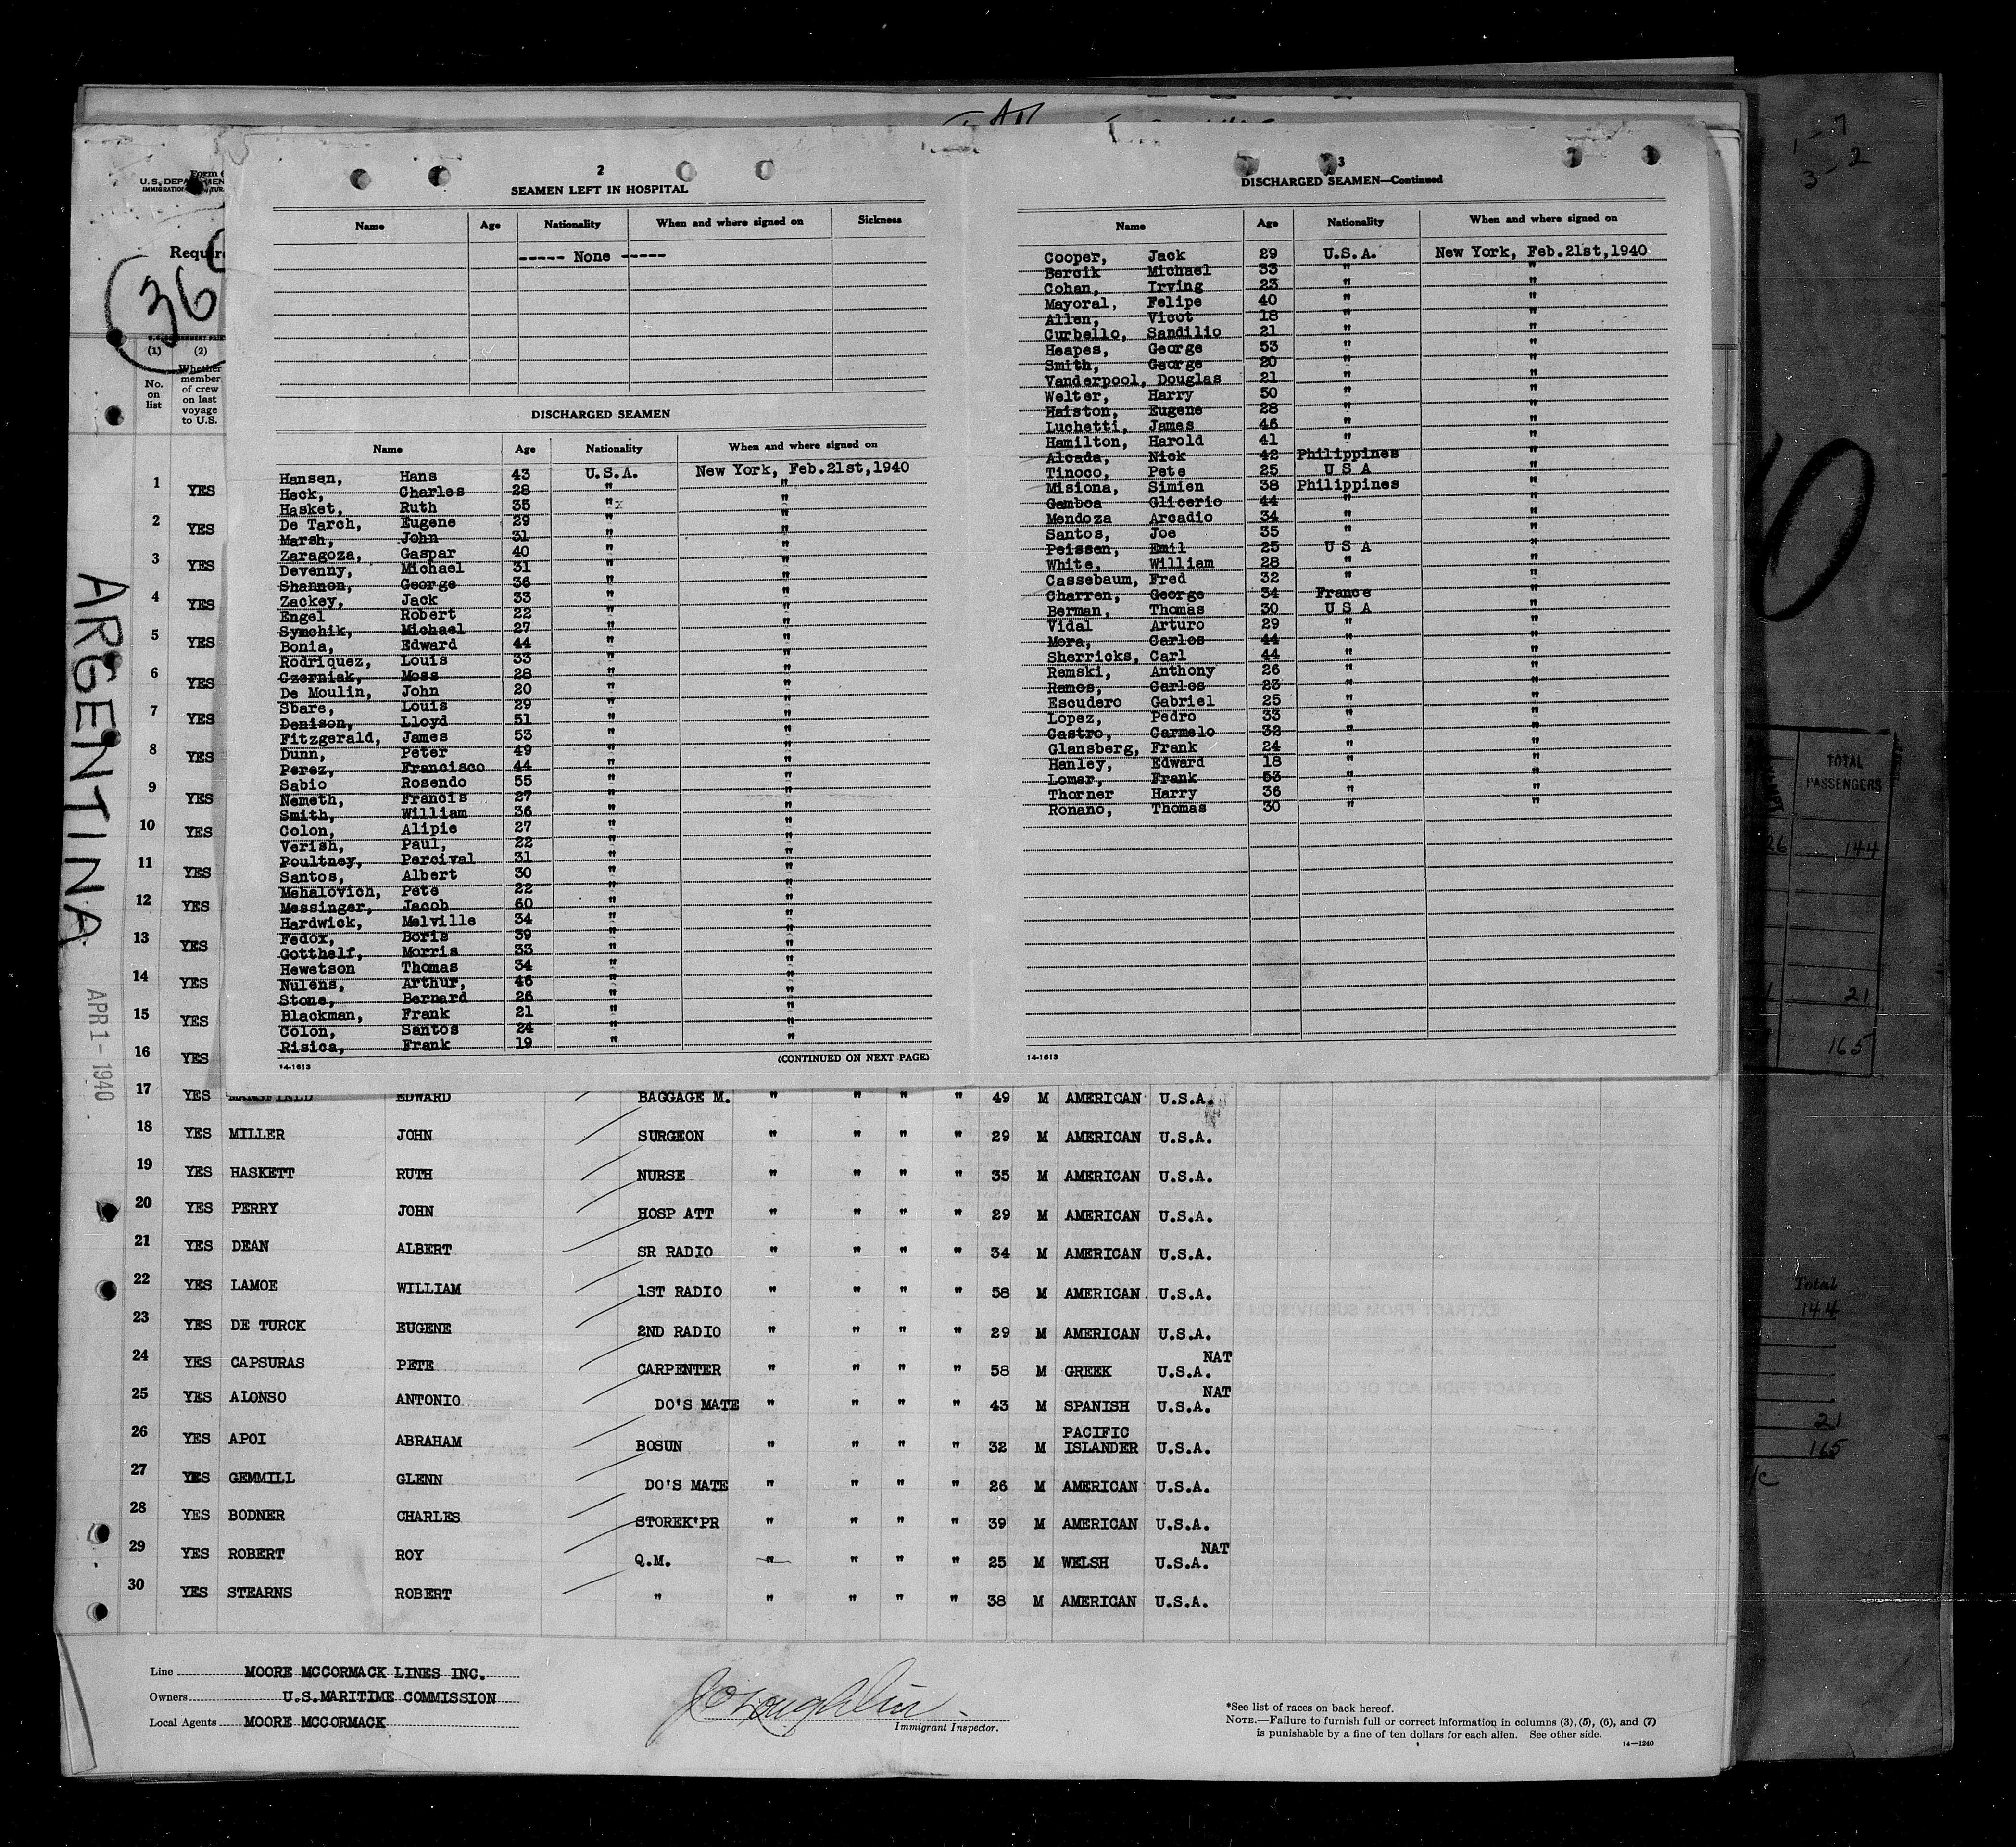 2
SEAMEN LEFT IN HOSPITAL
Name Age Nationality When and where signed on Sickness
----- None -----
DISCHARGED SEAMEN
Name Age Nationality When and where signed on
Hansen, Hans 43 U.S.A. New York, Feb.21st,1940
Heck, Charles 28 " "
Hasket, Ruth 35 " "
De Tarch, Eugene 29 " "
Marsh, John 31 " "
Zaragoza, Gaspar 40 " "
Devenny, Michael 31 " "
Shannon, George 36 " "
Zackey, Jack 33 " "
Engel Robert 22 " "
Symchik, Michael 27 " "
Bonia, Edward 44 " "
Rodriquez, Louis 33 " "
Czerniak, Moss 28 " "
De Moulin, John 20 " "
Sbare, Louis 29 " "
Denison, Lloyd 51 " "
Fitzgerald, James 53 " "
Dunn, Peter 49 " "
Perez, Francisco 44 " "
Sabio Rosendo 55 " "
Nemeth, Francis 27 " "
Smith, William 36 " "
Colon, Alipie 27 " "
Verish, Paul, 22 " "
Poultney, Percival 31 " "
Santos, Albert 30 " "
Mehalovich, Pete 22 " "
Messinger, Jacob 60 " "
Hardwick, Melville 34 " "
Fedox, Boris 39 " "
Gotthelf, Morris 33 " "
Hewetson Thomas 34 " "
Nulens, Arthur, 46 " "
Stone, Bernard 26 " "
Blackman, Frank 21 " "
Colon, Santos 24 " "
Risica, Frank 19 " "
(CONTINUED ON NEXT PAGE)
14-1613
3
DISCHARGED SEAMEN—Continued
Name Age Nationality When and where signed on
Cooper, Jack 29 U.S.A. New York, Feb.21st,1940
Bercik Michael 33 " "
Cohan, Irving 23 " "
Mayoral, Felipe 40 " "
Allen, Vicot 18 " "
Curbello, Sandilio 21 " "
Heapes, George 53 " "
Smith, George 20 " "
Vanderpool, Douglas 21 " "
Welter, Harry 50 " "
Haiston, Eugene 28 " "
Luchetti, James 46 " "
Hamilton, Harold 41 " "
Alcada, Nick 42 Philippines "
Tinoco, Pete 25 U S A "
Misiona, Simien 38 Philippines "
Gamboa Glicerio 44 " "
Mendoza Arcadio 34 " "
Santos, Joe 35 " "
Peissen, Emil 25 U S A "
White, William 28 " "
Cassebaum, Fred 32 " "
Charren, George 34 France "
Berman, Thomas 30 U S A "
Vidal Arturo 29 " "
Mora, Carlos 44 " "
Sherricks, Carl 44 " "
Remski, Anthony 26 " "
Ramos, Carlos 23 " "
Escudero Gabriel 25 " "
Lopez, Pedro 33 " "
Castro, Carmelo 32 " "
Glansberg, Frank 24 " "
Hanley, Edward 18 " "
Lomer, Frank 53 " "
Thorner Harry 36 " "
Ronano, Thomas 30 "
14-1613
Form
U.S. DEPARTMEN
IMMIGRATION
Requir
36
(1) (2)
No. on list
Whether member of crew on last voyage to U.S.
ARGENTINA
APR 1-1940
1 YES
2 YES
3 YES
4 YES
5 YES
6 YES
7 YES
8 YES
9 YES
10 YES
11 YES
12 YES
13 YES
14 YES
15 YES
16 YES
17 YES MANSFIELD EDWARD BAGGAGE M. " " " " 49 M AMERICAN U.S.A.
18 YES MILLER JOHN SURGEON " " " " 29 M AMERICAN U.S.A.
19 YES HASKETT RUTH NURSE " " " " 35 M AMERICAN U.S.A.
20 YES PERRY JOHN HOSP ATT " " " " 29 M AMERICAN U.S.A.
21 YES DEAN ALBERT SR RADIO " " " " 34 M AMERICAN U.S.A.
22 YES LAMOE WILLIAM 1ST RADIO " " " " 58 M AMERICAN U.S.A.
23 YES DE TURCK EUGENE 2ND RADIO " " " " 29 M AMERICAN U.S.A.
24 YES CAPSURAS PETE CARPENTER " " " " 58 M GREEK U.S.A. NAT
25 YES ALONSO ANTONIO DO'S MATE " " " " 43 M SPANISH U.S.A. NAT
26 YES APOI ABRAHAM BOSUN " " " " 32 M PACIFIC ISLANDER U.S.A.
27 YES GEMMILL GLENN DO'S MATE " " " " 26 M AMERICAN U.S.A.
28 YES BODNER CHARLES STOREK'PR " " " " 39 M AMERICAN U.S.A.
29 YES ROBERT ROY Q.M. " " " " 25 M WELSH U.S.A. NAT
30 YES STEARNS ROBERT " " " " " 38 M AMERICAN U.S.A.
Line MOORE MCCORMACK LINES INC.
Owners U.S.MARITIME COMMISSION
Local Agents MOORE MCCORMACK
Immigrant Inspector.
*See list of races on back hereof.
NOTE.—Failure to furnish full or correct information in columns (3), (5), (6), and (7)
is punishable by a fine of ten dollars for each alien. See other side.
14-1240
1-7
3-2
TOTAL PASSENGERS
26 144
21
165
Total
144
21
165